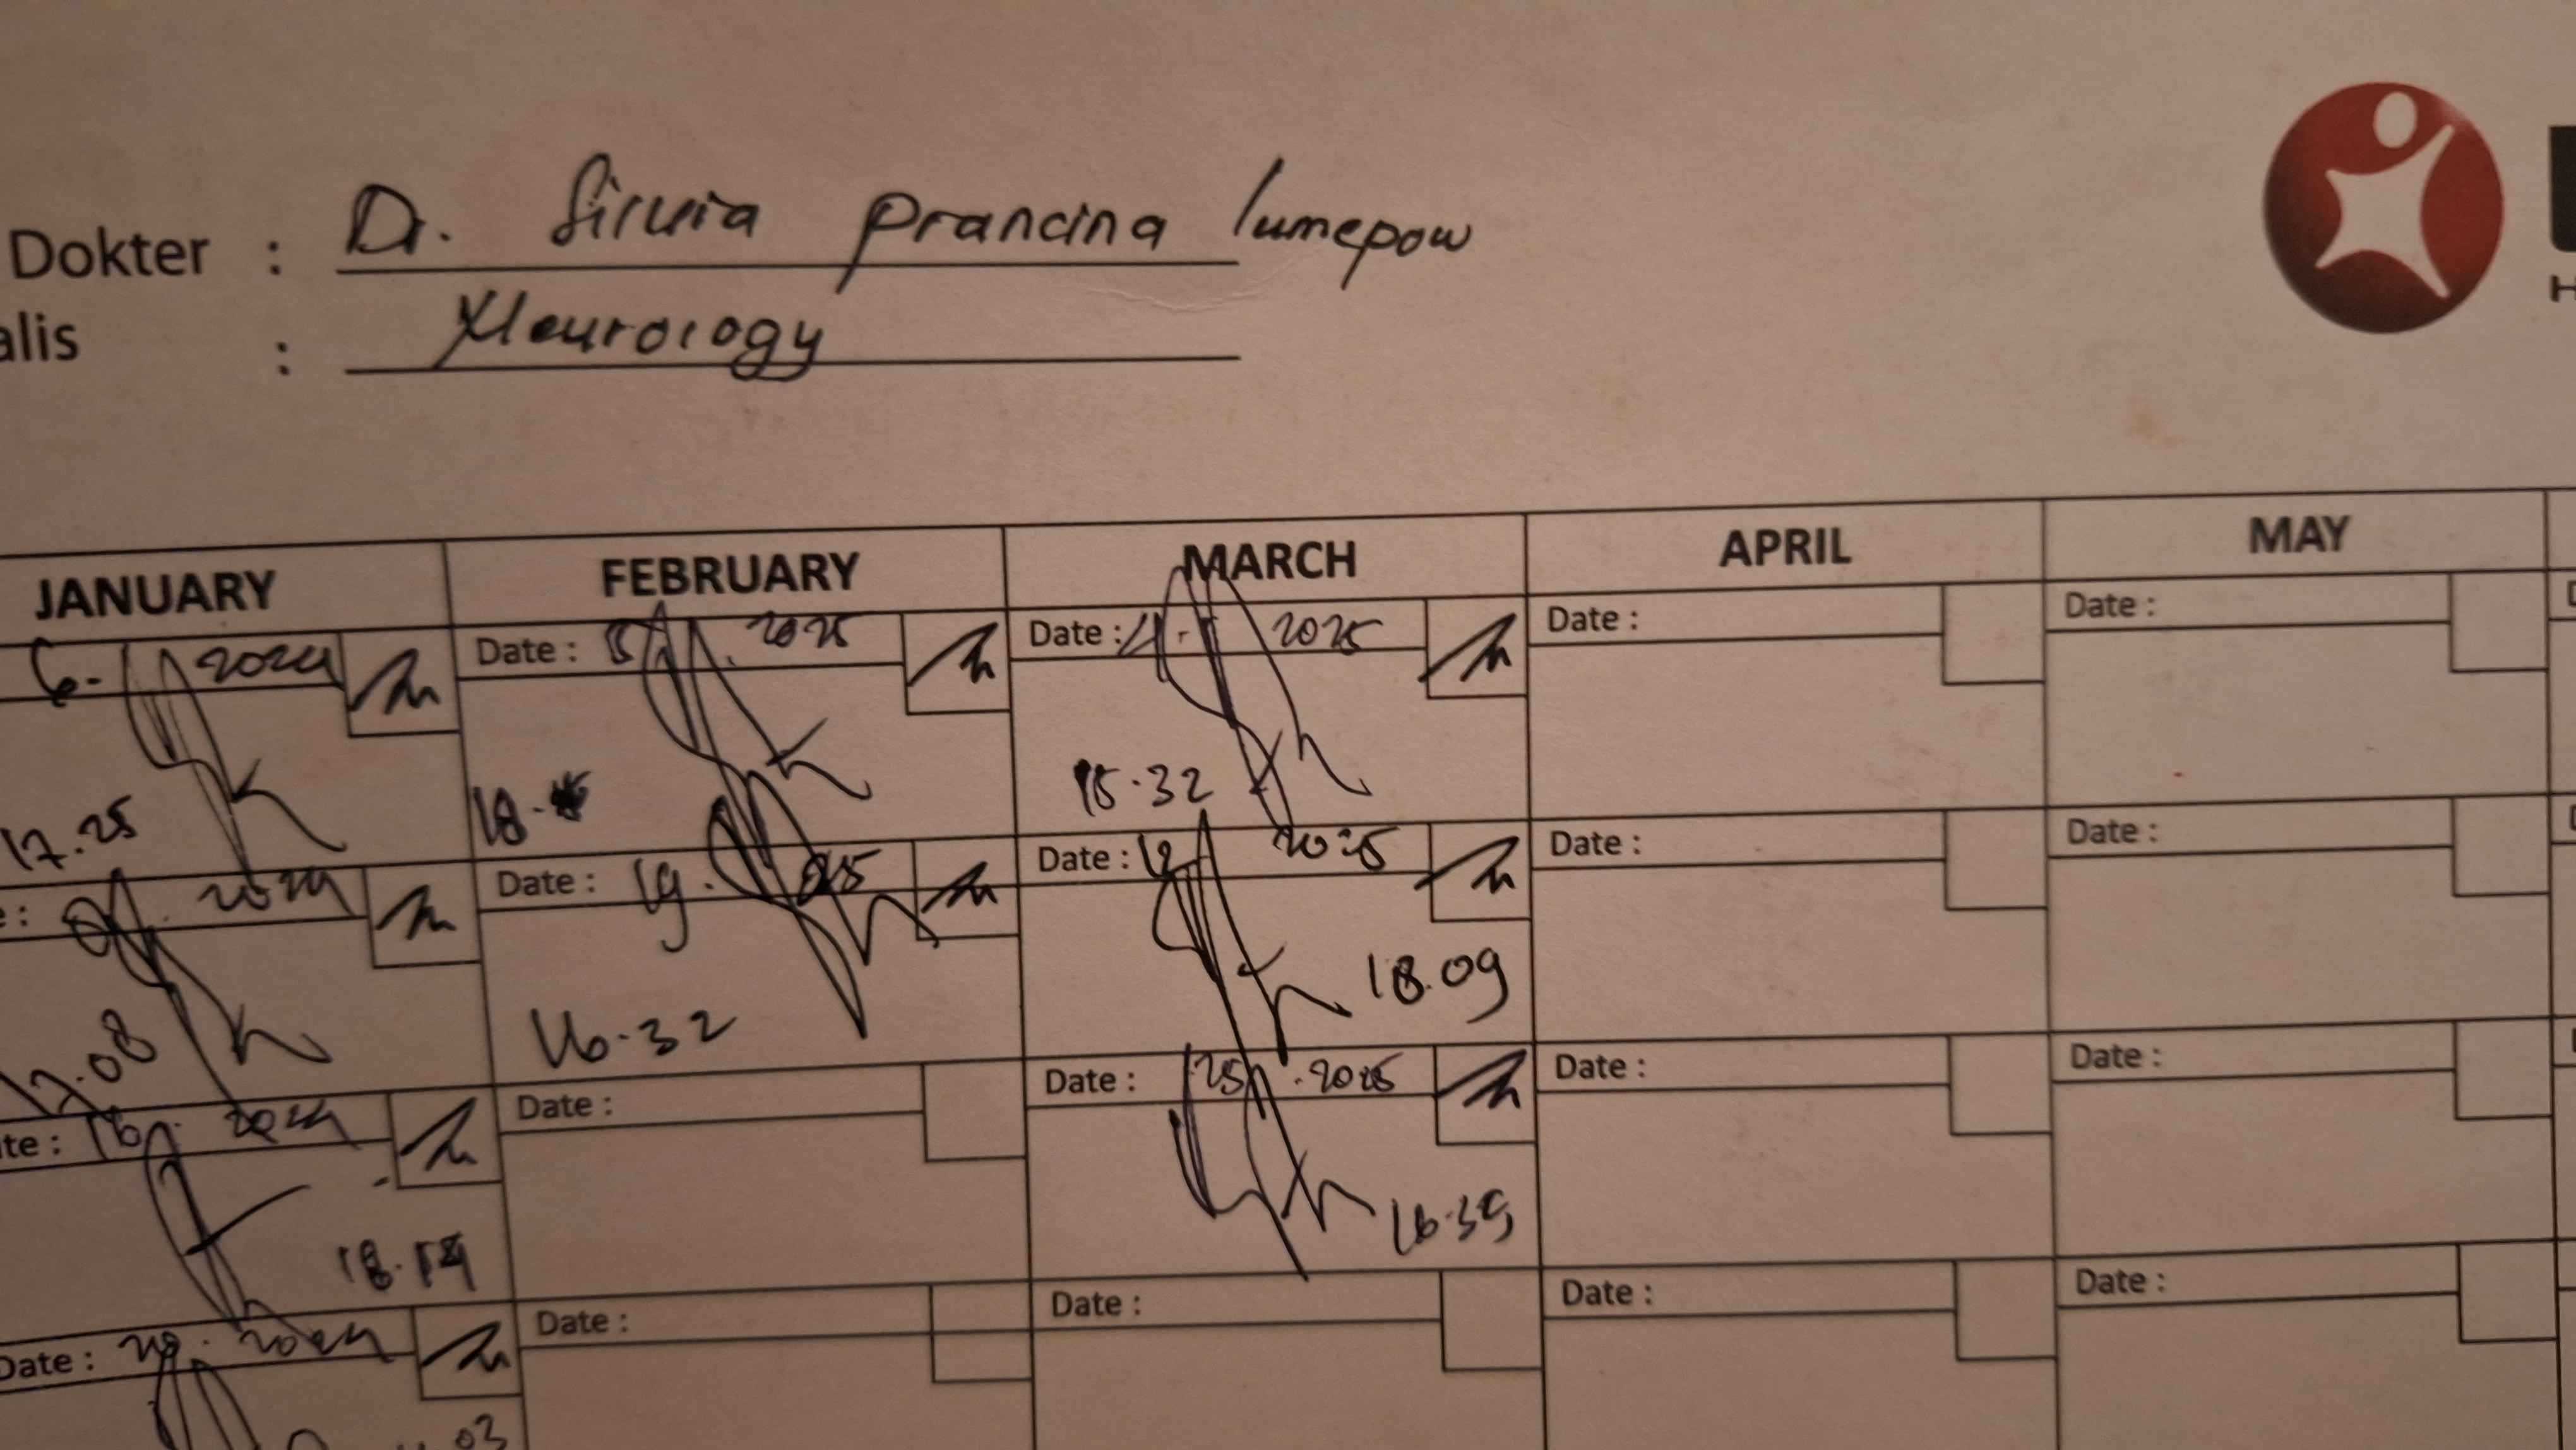 Dokter : Dr. Silvia prancina lumepow
alis : Neurology
JANUARY FEBRUARY MARCH APRIL MAY
6- 2024 Date : 5 2025 Date : 4- 2025 Date : Date :
17.25 18. 15.32
2024 Date : 19. Date : 12 2025 Date : Date :
17.08 16.32 18.09
te : 16 2024 Date : Date : 25 .2025 Date : Date :
18.14 16.39
Date : 2024 Date : Date : Date : Date :
03